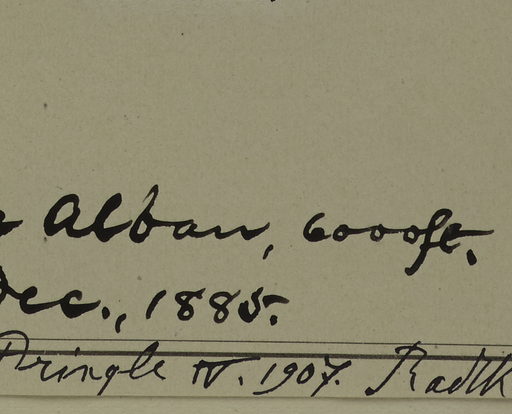 Alban, 6000ft.
Dec., 1885.
Pringle IV. 1907. Radlk